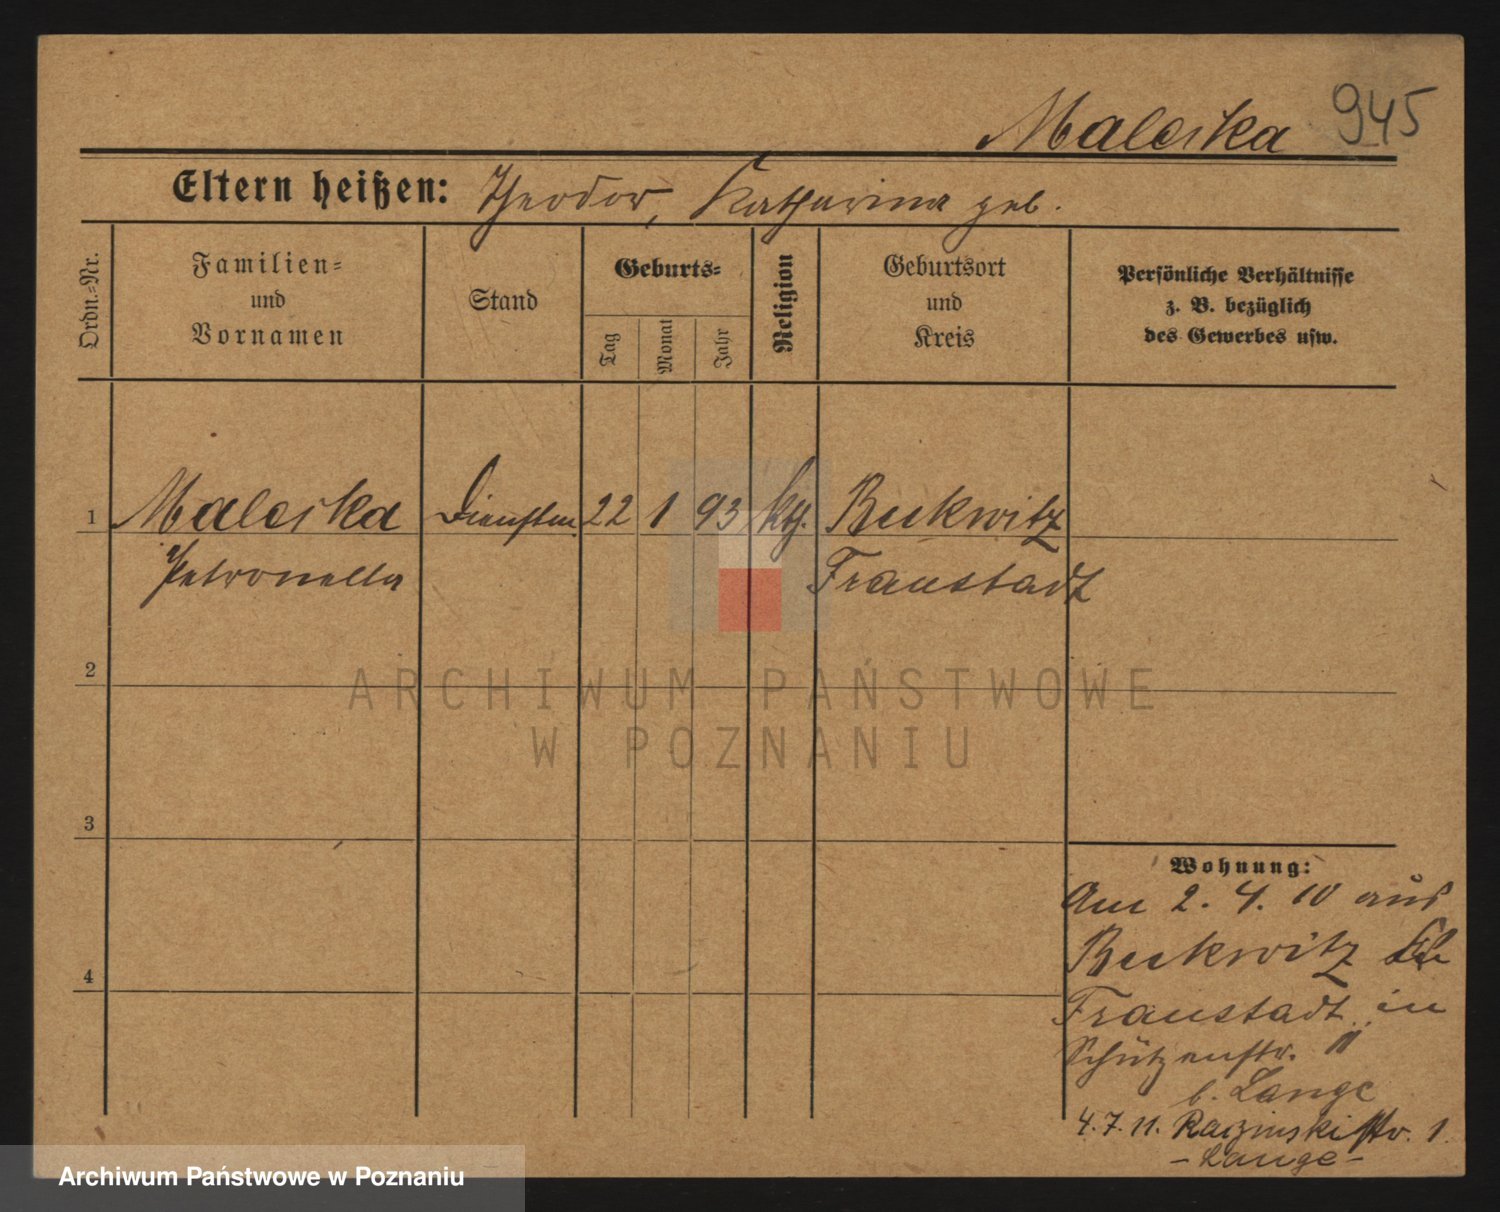 Maleska 945
Eltern heißen: Theodor, Katharina geb.
Ordn.-Nr.
Familien-
und
Vornamen
Stand
Geburts-
Tag
Monat
Jahr
Religion
Geburtsort
und
Kreis
Persönliche Verhältnisse
z. B. bezüglich
des Gewerbes usw.
1 Maleska 22 1 93 kth. Bukwitz
Petronella Fraustadt
2
3
4
Wohnung:
Am 2. 4. 10 aus
Bukwitz
Fraustadt in
Schützenstr. 11
b. Lange
4. 7. 11. Raczinskistr. 1.
- Lange -
ARCHIWUM PAŃSTWOWE
W POZNANIU
Archiwum Państwowe w Poznaniu